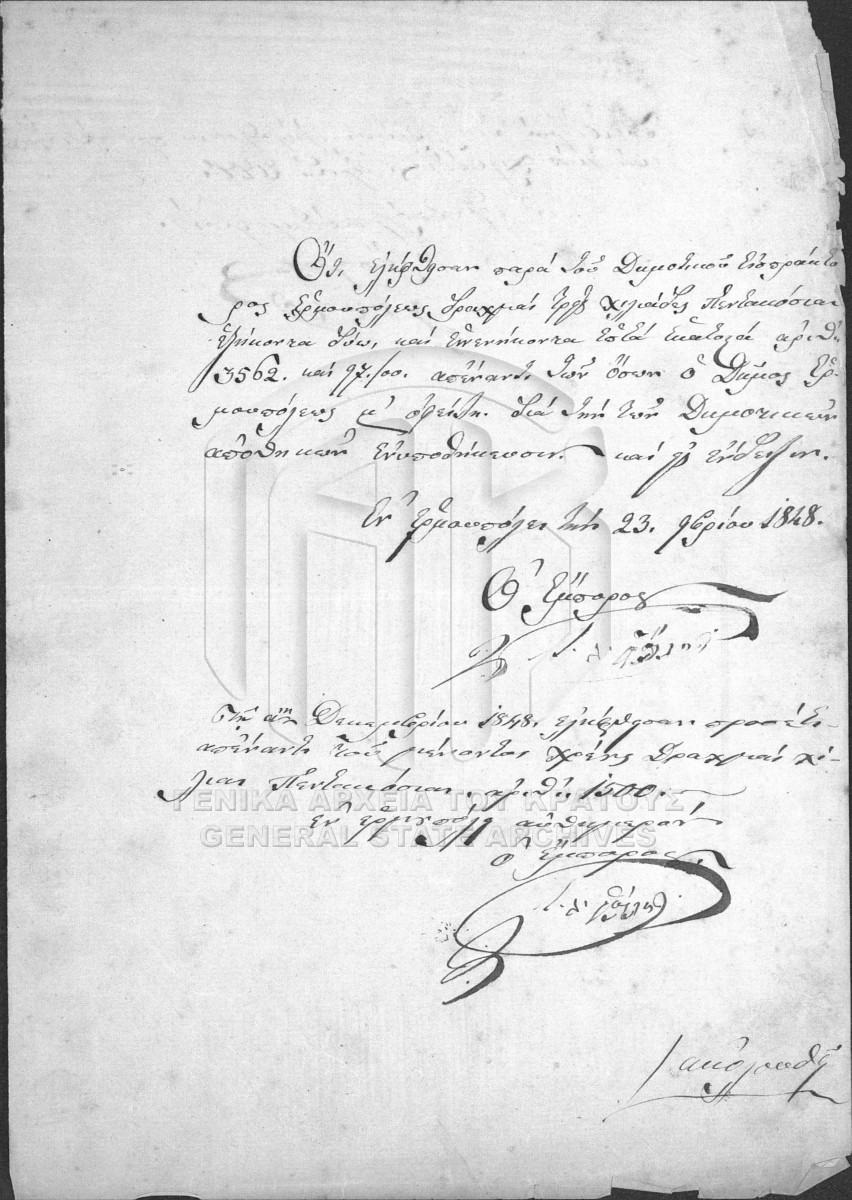 Ὅτι ἐλήφθησαν παρὰ τοῦ Δημοτικοῦ Εἰσπράκτο
ρος Ἑρμουπόλεως δραχμαὶ τρεῖς χιλιάδες Πεντακόσιαι
ἑξήκοντα δύω, καὶ ἐννενήκοντα ἑπτὰ ἑκατοστά ἀριθ.
3562. καὶ 97./οο. ἀπέναντι τῶν ὅσων ὁ Δῆμος Ἑρ-
μουπόλεως μ' ὀφείλει διὰ τὴν τῶν Δημοτικῶν
ἀποθηκῶν ἐνυποθήκευσιν. καὶ εἰς ἔνδειξιν.
Ἐν Ἑρμουπόλει τὴν 23. 9βρίου 1848.
Ὁ Ἔμπορος
Τῇ αῃ Δεκεμβρίου 1848. ἐλήφθησαν προσέτι
ἀπέναντι τοῦ μένοντος χρέους δραχμαὶ χί-
λιαι Πεντακόσιαι, ἀριθ. 1500.-
Ἐν Ἑρμουπόλει αὐθημερόν
ὁ Ἔμπορος
ἀκολουθεῖ
ΓΕΝΙΚΑ ΑΡΧΕΙΑ ΤΟΥ ΚΡΑΤΟΥΣ
GENERAL STATE ARCHIVES